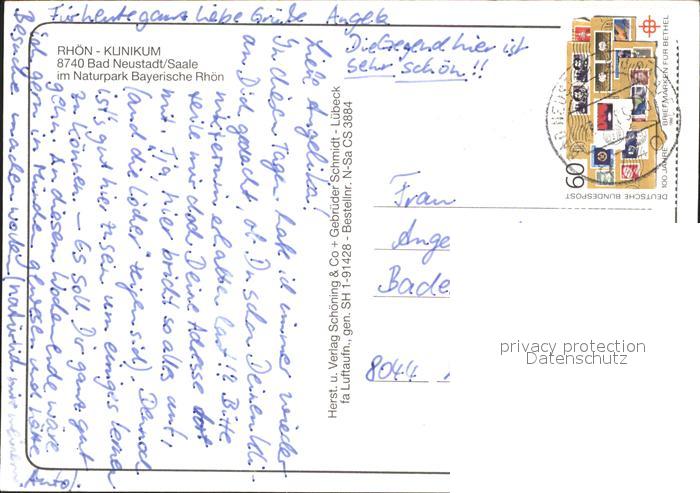 RHÖN - KLINIKUM
8740 Bad Neustadt/Saale
im Naturpark Bayerische Rhön
Liebe Angelika!
In diesen Tagen hab ich immer wieder
an Dich gedacht, ob Du schon Deinen Kli-
niktermin erhalten hast!? Bitte
teile mir doch Deine Adresse dort
mit. Tja, hier bricht so alles auf,
Dennoch
ist's gut hier zu sein um einiges lernen
zu können. – Es soll Dir ganz gut
gehn. An diesem Wochenende wäre
ich gern in Minden gewesen und hätte
Besuche machen wollen (natürlich mit meinem
Auto).
Für heute ganz liebe Grüße Angela
Die Gegend hier ist
sehr schön!!
Herst. u. Verlag Schöning & Co + Gebrüder Schmidt - Lübeck
fa Luftaufn., gen. SH 1-91428 - Bestellnr. N-Sa CS 3884
Frau
Ange
Bade
8044
60
DEUTSCHE BUNDESPOST
100 JAHRE BRIEFMARKEN FÜR BETHEL
privacy protection
Datenschutz